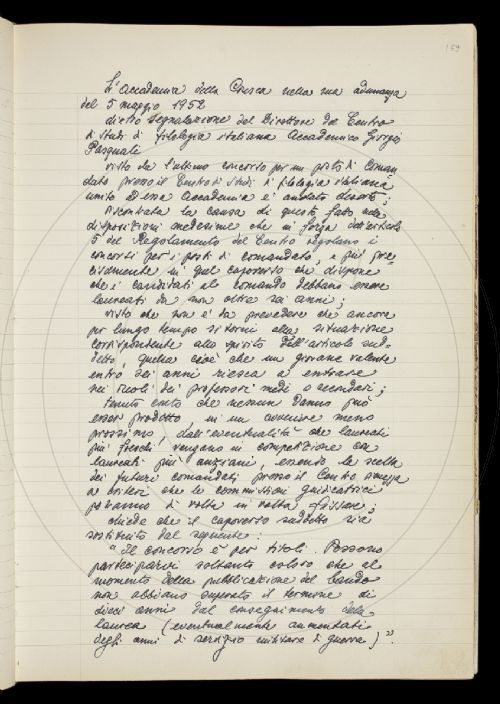 159
L'Accademia della Crusca nella sua adunanza
del 5 maggio 1952
dietro segnalazione del Direttore del Centro
di studi di filologia italiana Accademico Giorgio
Pasquali
visto che l'ultimo concorso per un posto di coman-
dato presso il Centro di studi di filologia italiana
unito ad essa Accademia è andato deserto;
riscontrata la causa di questo fatto nelle
disposizioni medesime che in forza dell'articolo
5 del Regolamento del Centro regolano i
concorsi per i posti di comandato, e più pre-
cisamente in quel capoverso che dispone
che i candidati al comando debbano essere
laureati da non oltre sei anni;
visto che non è da prevedere che ancora
per lungo tempo si torni alla situazione
corrispondente allo spirito dell'articolo sud-
detto, quella cioè che un giovane valente
entro sei anni riesca a entrare
nei ruoli dei professori medi o secondari;
tenuto conto che nessun danno può
esser prodotto in un avvenire meno
prossimo dall'eventualità che laureati
più freschi vengano in competizione con
laureati più anziani, essendo la scelta
dei futuri comandati presso il Centro
ai criteri che le commissioni giudicatrici
potranno di volta in volta fissare;
chiede che il capoverso suddetto sia
sostituito dal seguente:
"Il concorso è per titoli. Possono
parteciparvi soltanto coloro che al
momento della pubblicazione del bando
non abbiano superato il termine di
dieci anni dal conseguimento della
laurea (eventualmente aumentati
degli anni di servizio militare di guerra)".